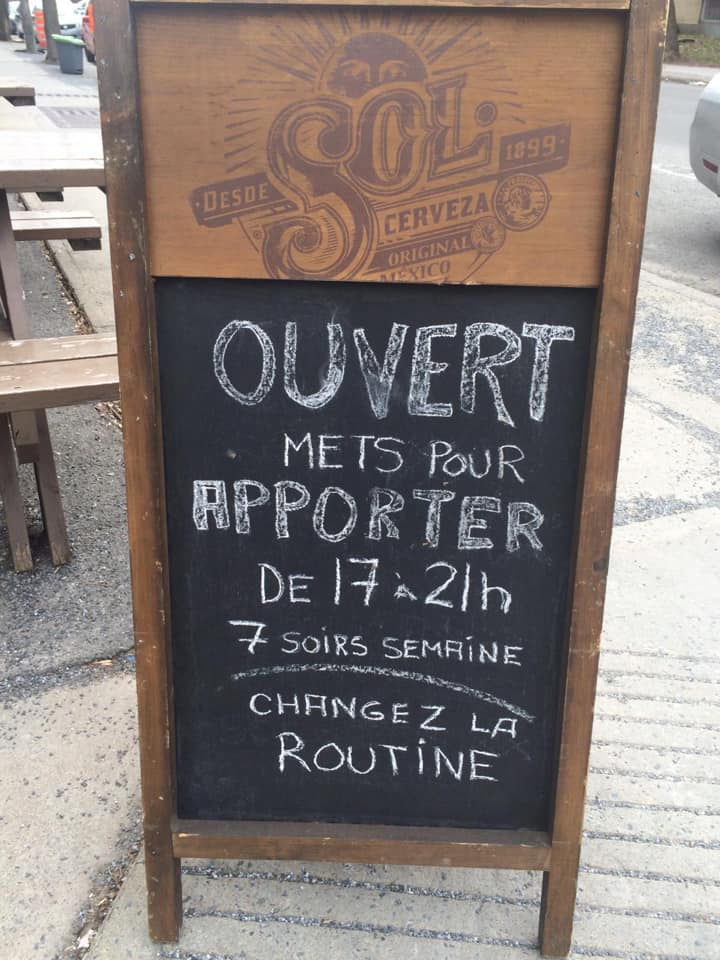 SOL
DESDE
1899
CERVEZA
ORIGINAL
MEXICO
OUVERT
METS POUR
APPORTER
DE 17 à 21h
7 SOiRS SEMAiNE
CHANGEZ LA
ROUTiNE